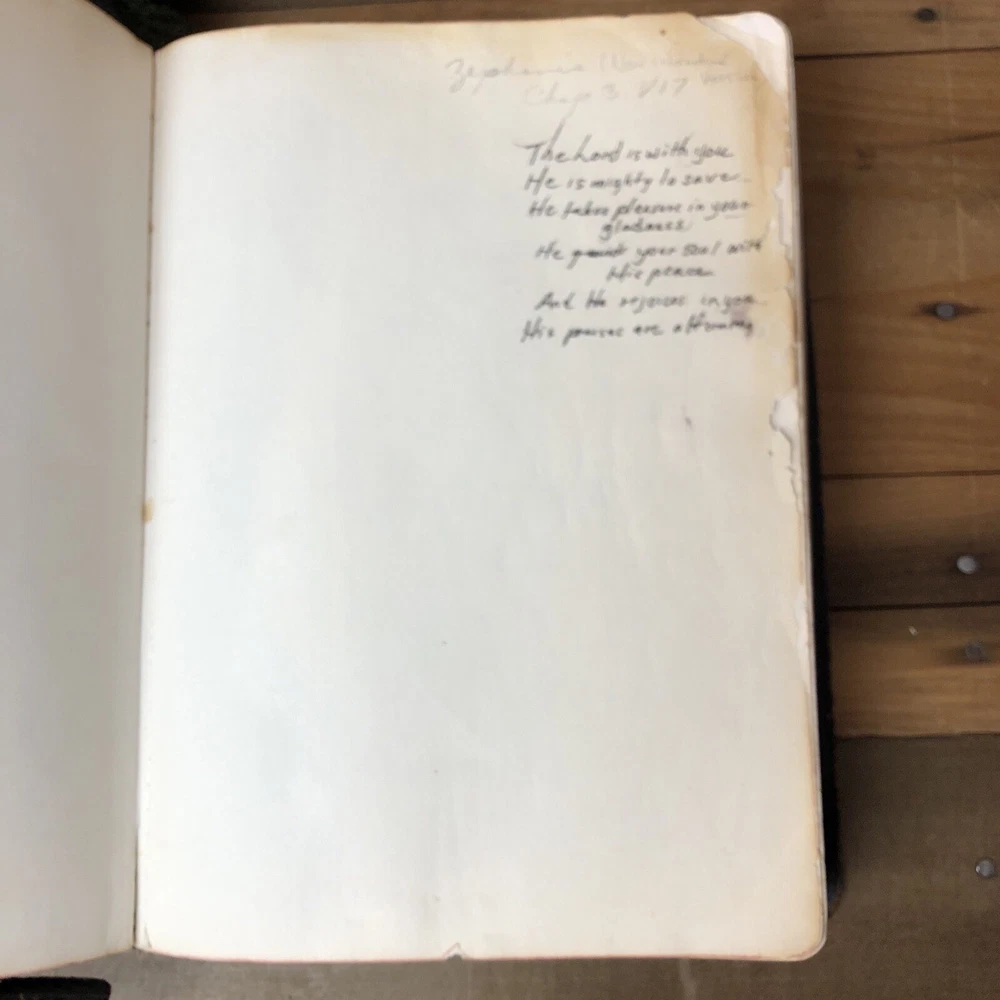 Zephania (New
Chap 3. V17
The Lord is with you
He is mighty to save.
He takes pleasure in your
gladness
He your soul with
His peace
And He rejoices in you.
His praises are